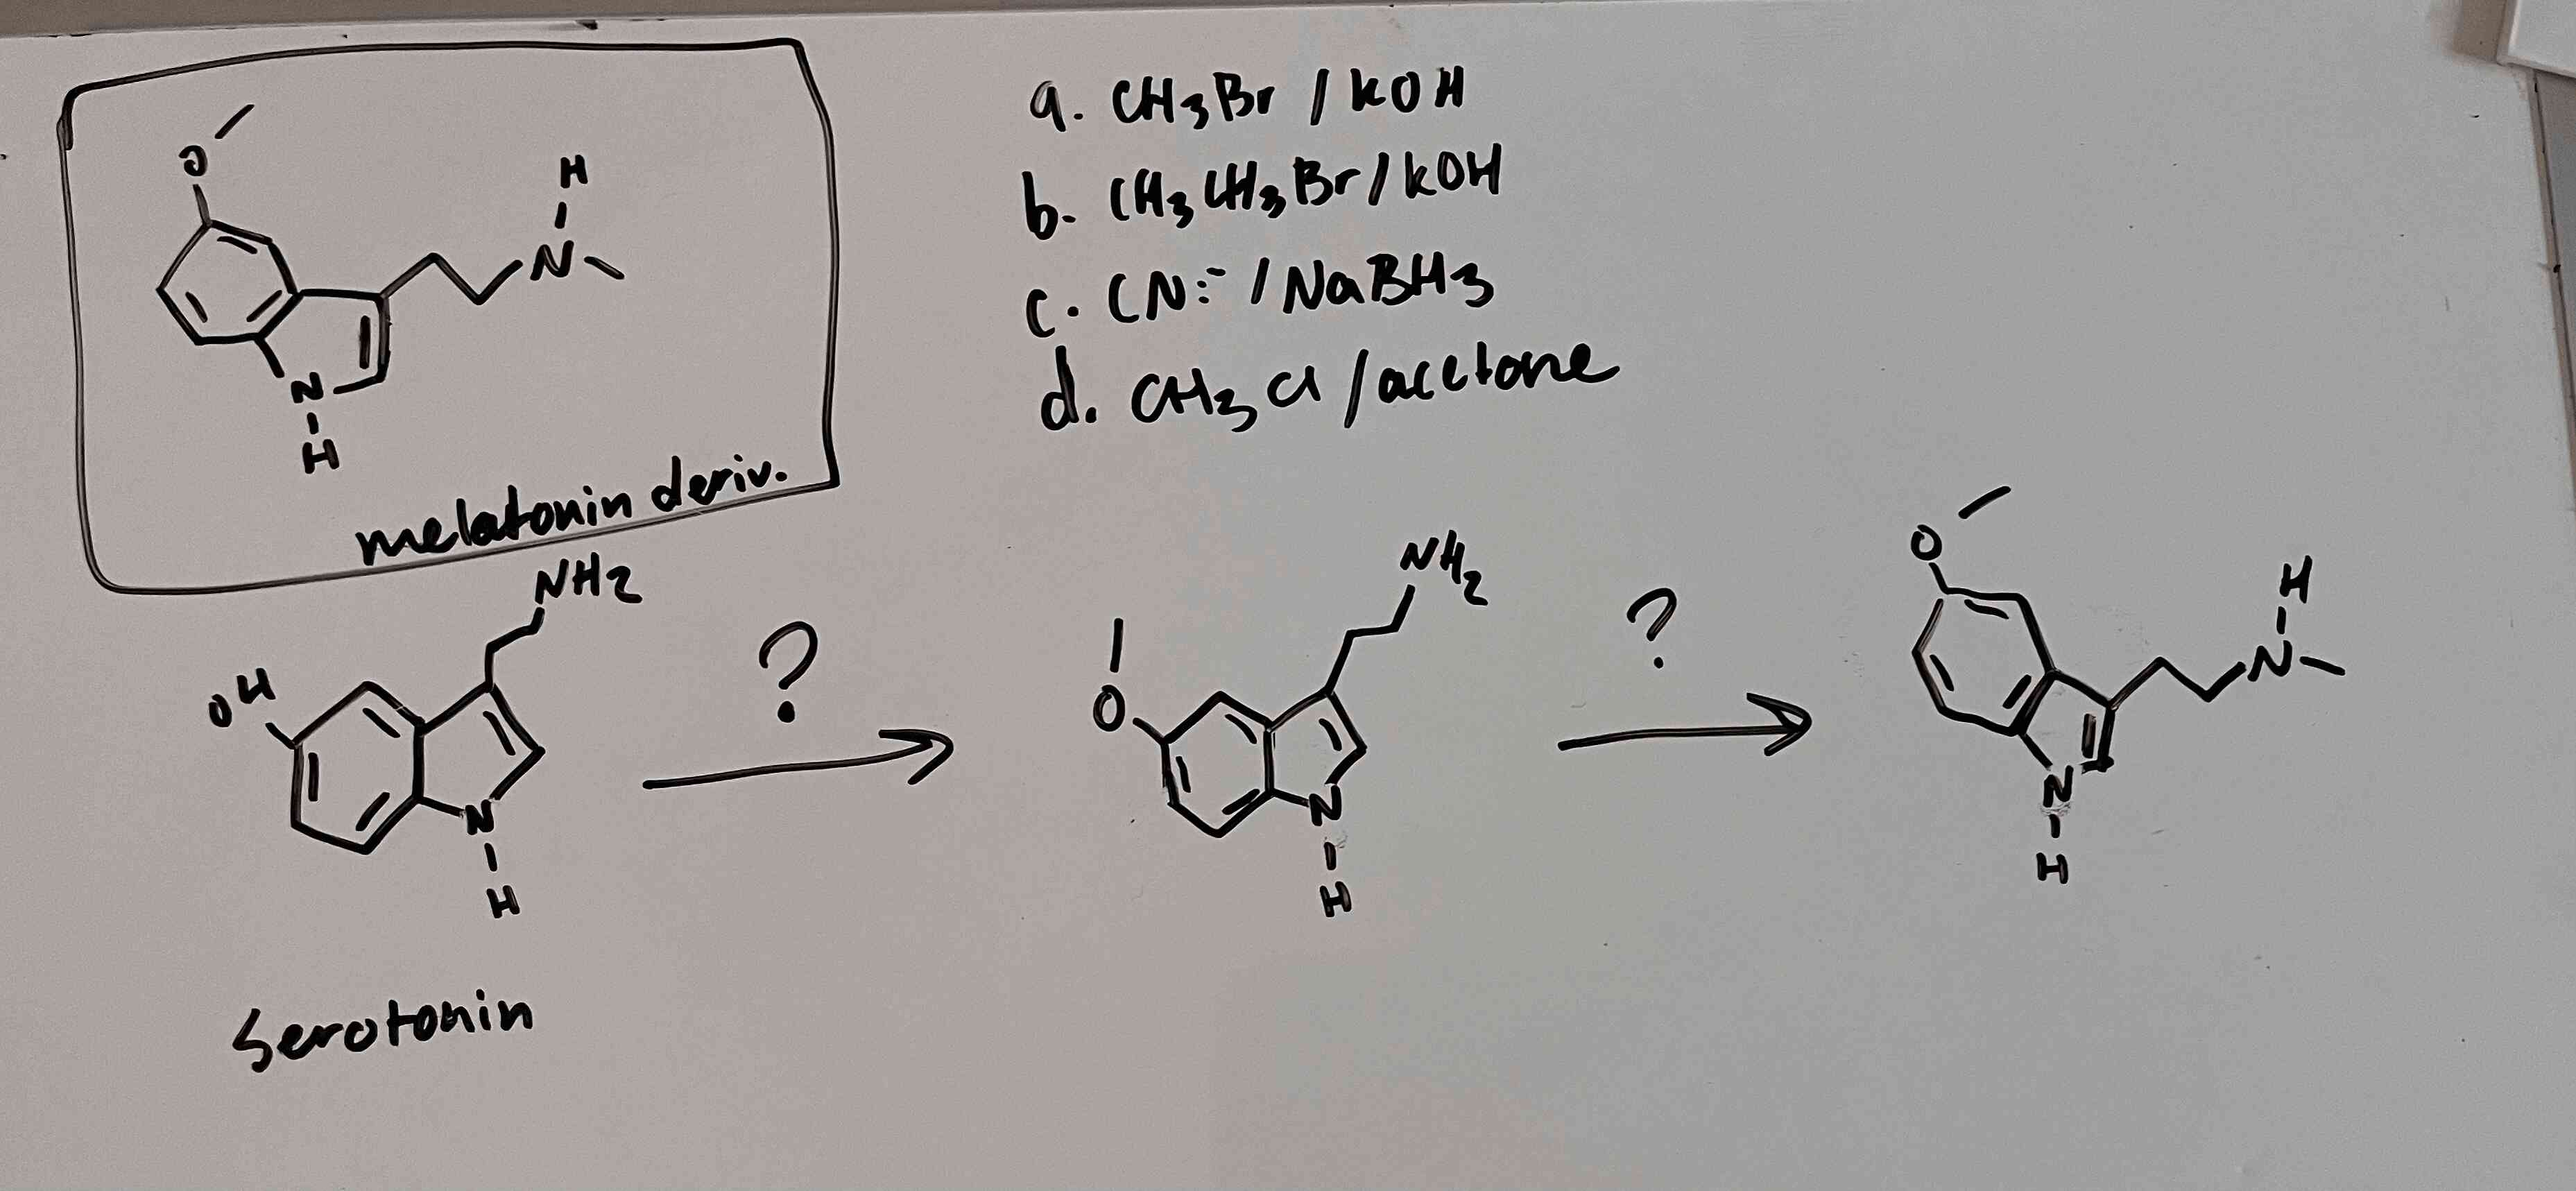 O
H
N
N
H
melatonin deriv.
a. CH3Br / KOH
b. CH3CH3Br / KOH
c. CN:⁻ / NaBH3
d. CH3Cl / acetone
NH2
OH
N
H
Serotonin
?
NH2
O
N
H
?
O
H
N
N
H